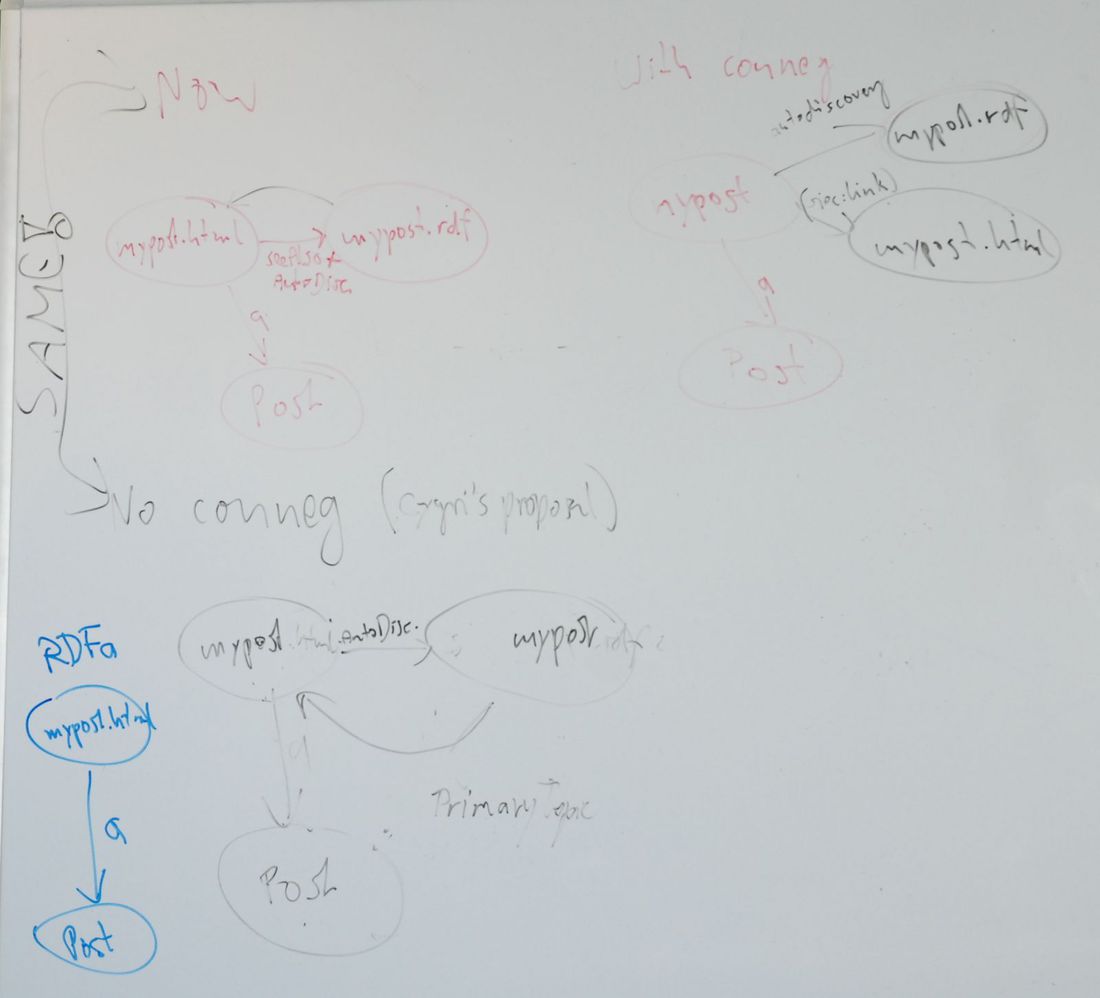 Now
With conneg
autodiscovery
mypost.rdf
mypost
(sioc:link)
mypost.html
a
Post
mypost.html
mypost.rdf
seeAlso +
AutoDisc
a
Post
SAME
No conneg (Cygri's proposal)
RDFa
mypost.html
a
Post
mypost.html
AutoDisc.
mypost.rdf
a
Primary Topic
Post